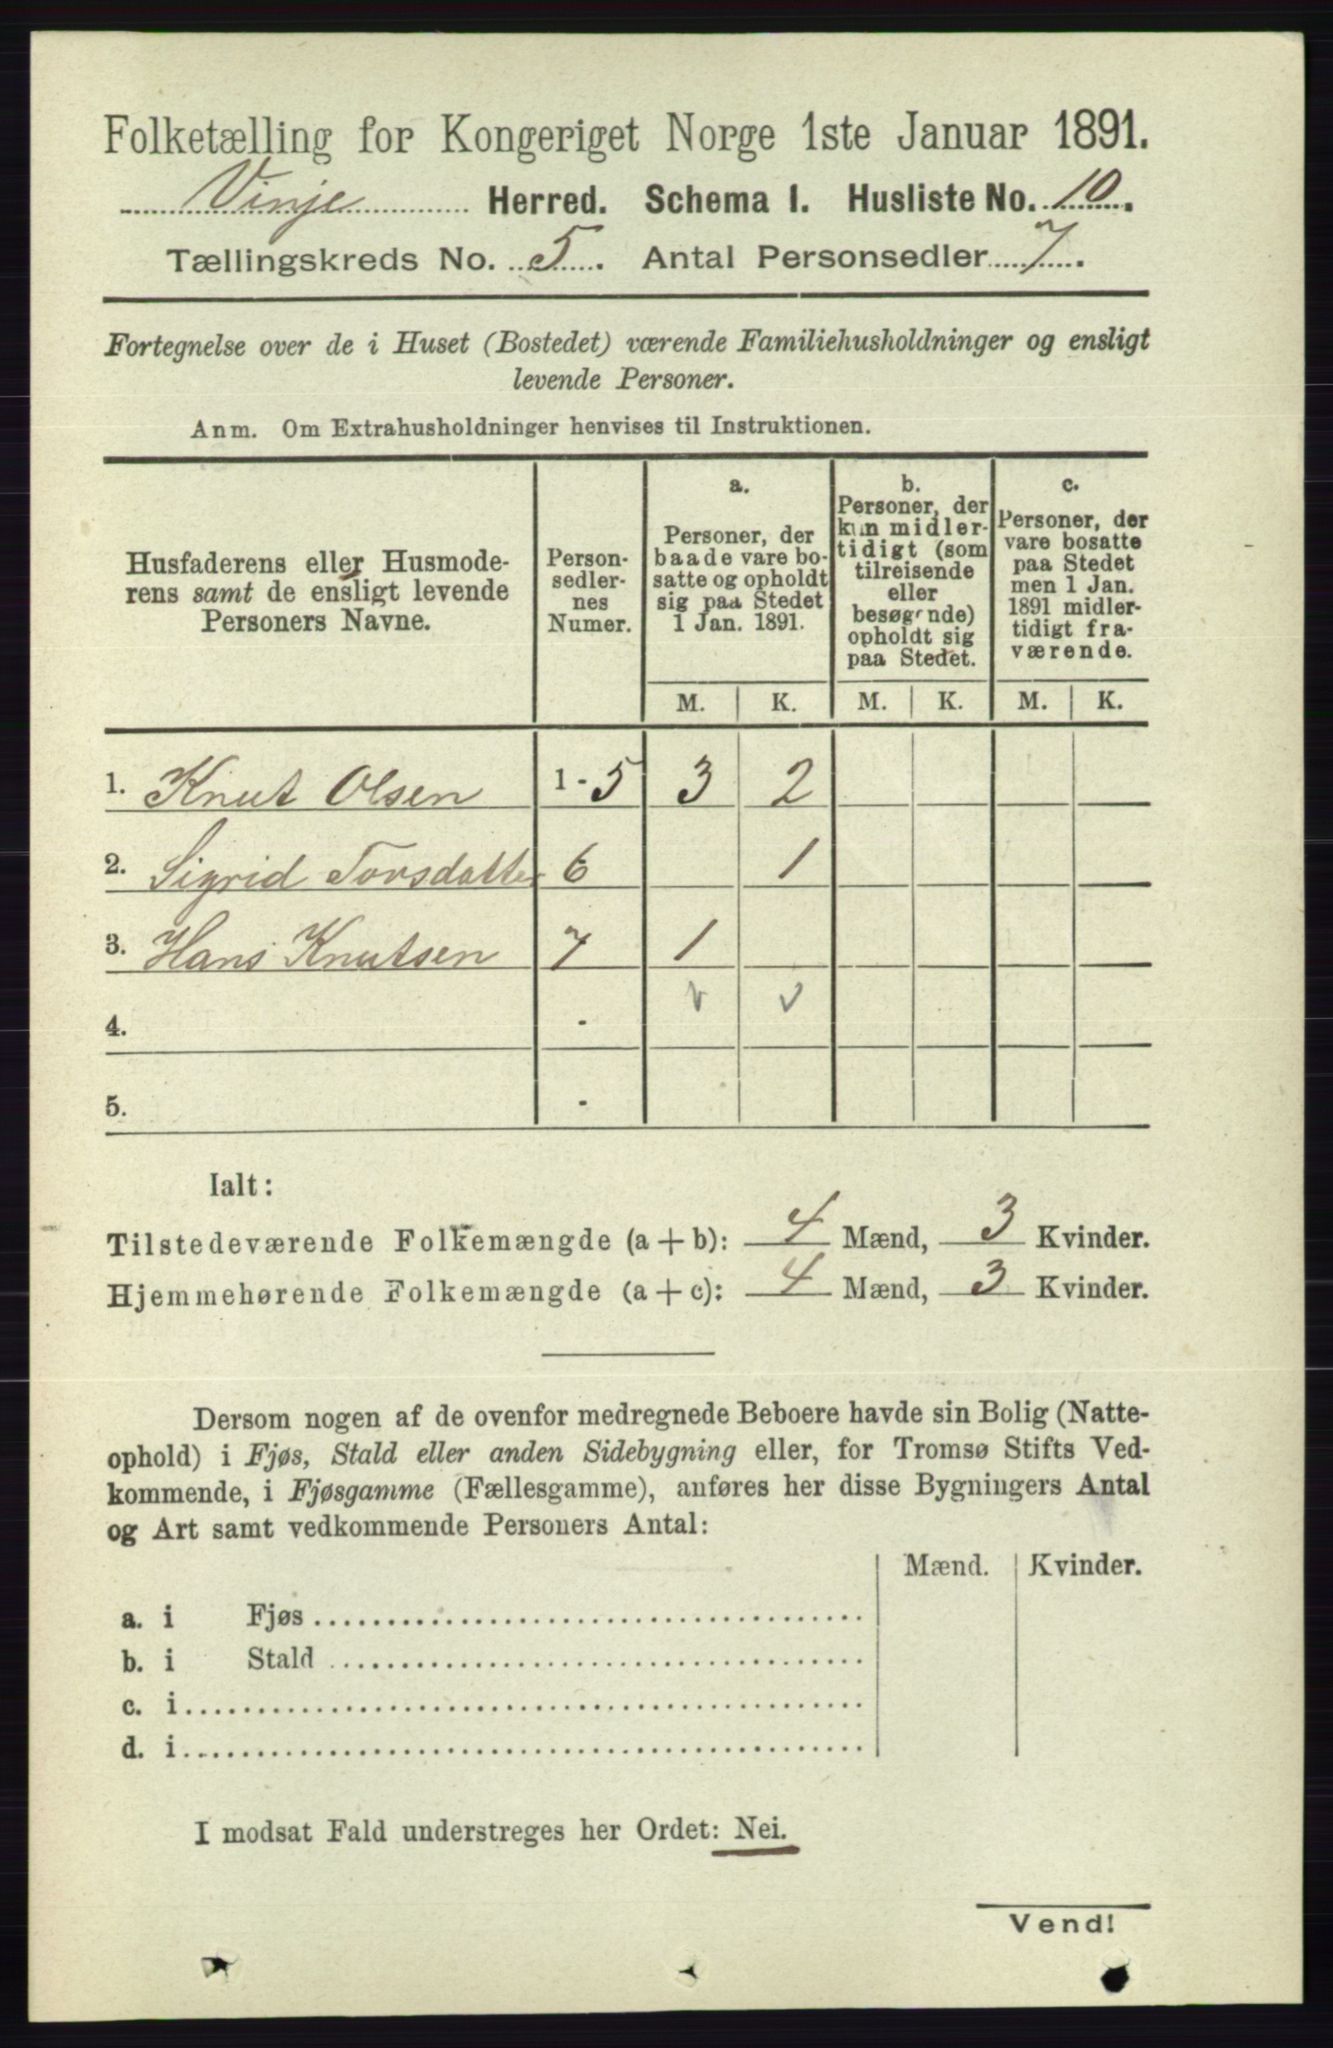 Folketælling for Kongeriget Norge 1ste Januar 1891.
Vinje Herred. Schema 1. Husliste No. 10.
Tællingskreds No. 5. Antal Personsedler 7.
Fortegnelse over de i Huset (Bostedet) værende Familiehusholdninger og ensligt
levende Personer.
Anm. Om Extrahusholdninger henvises til Instruktionen.
Husfaderens eller Husmode-
rens samt de ensligt levende
Personers Navne.
Person-
sedler-
nes
Numer.
a.
Personer, der
baade vare bo-
satte og opholdt
sig paa Stedet
1 Jan. 1891.
b.
Personer, der
kun midler-
tidigt (som
tilreisende
eller
besøgende)
opholdt sig
paa Stedet.
c.
Personer, der
vare bosatte
paa Stedet
men 1 Jan.
1891 midler-
tidigt fra-
værende.
M. K. M. K. M. K.
1. Knut Olsen 1-5 3 2
2. Sigrid Torsdatter 6 1
3. Hans Knutsen 7 1
4. - v v
5. -
Ialt:
Tilstedeværende Folkemængde (a+b): 4 Mænd, 3 Kvinder.
Hjemmehørende Folkemængde (a+c): 4 Mænd, 3 Kvinder.
Dersom nogen af de ovenfor medregnede Beboere havde sin Bolig (Natte-
ophold) i Fjøs, Stald eller anden Sidebygning eller, for Tromsø Stifts Ved-
kommende, i Fjøsgamme (Fællesgamme), anføres her disse Bygningers Antal
og Art samt vedkommende Personers Antal:
Mænd. Kvinder.
a. i Fjøs
b. i Stald
c. i
d. i
I modsat Fald understreges her Ordet: Nei.
Vend!